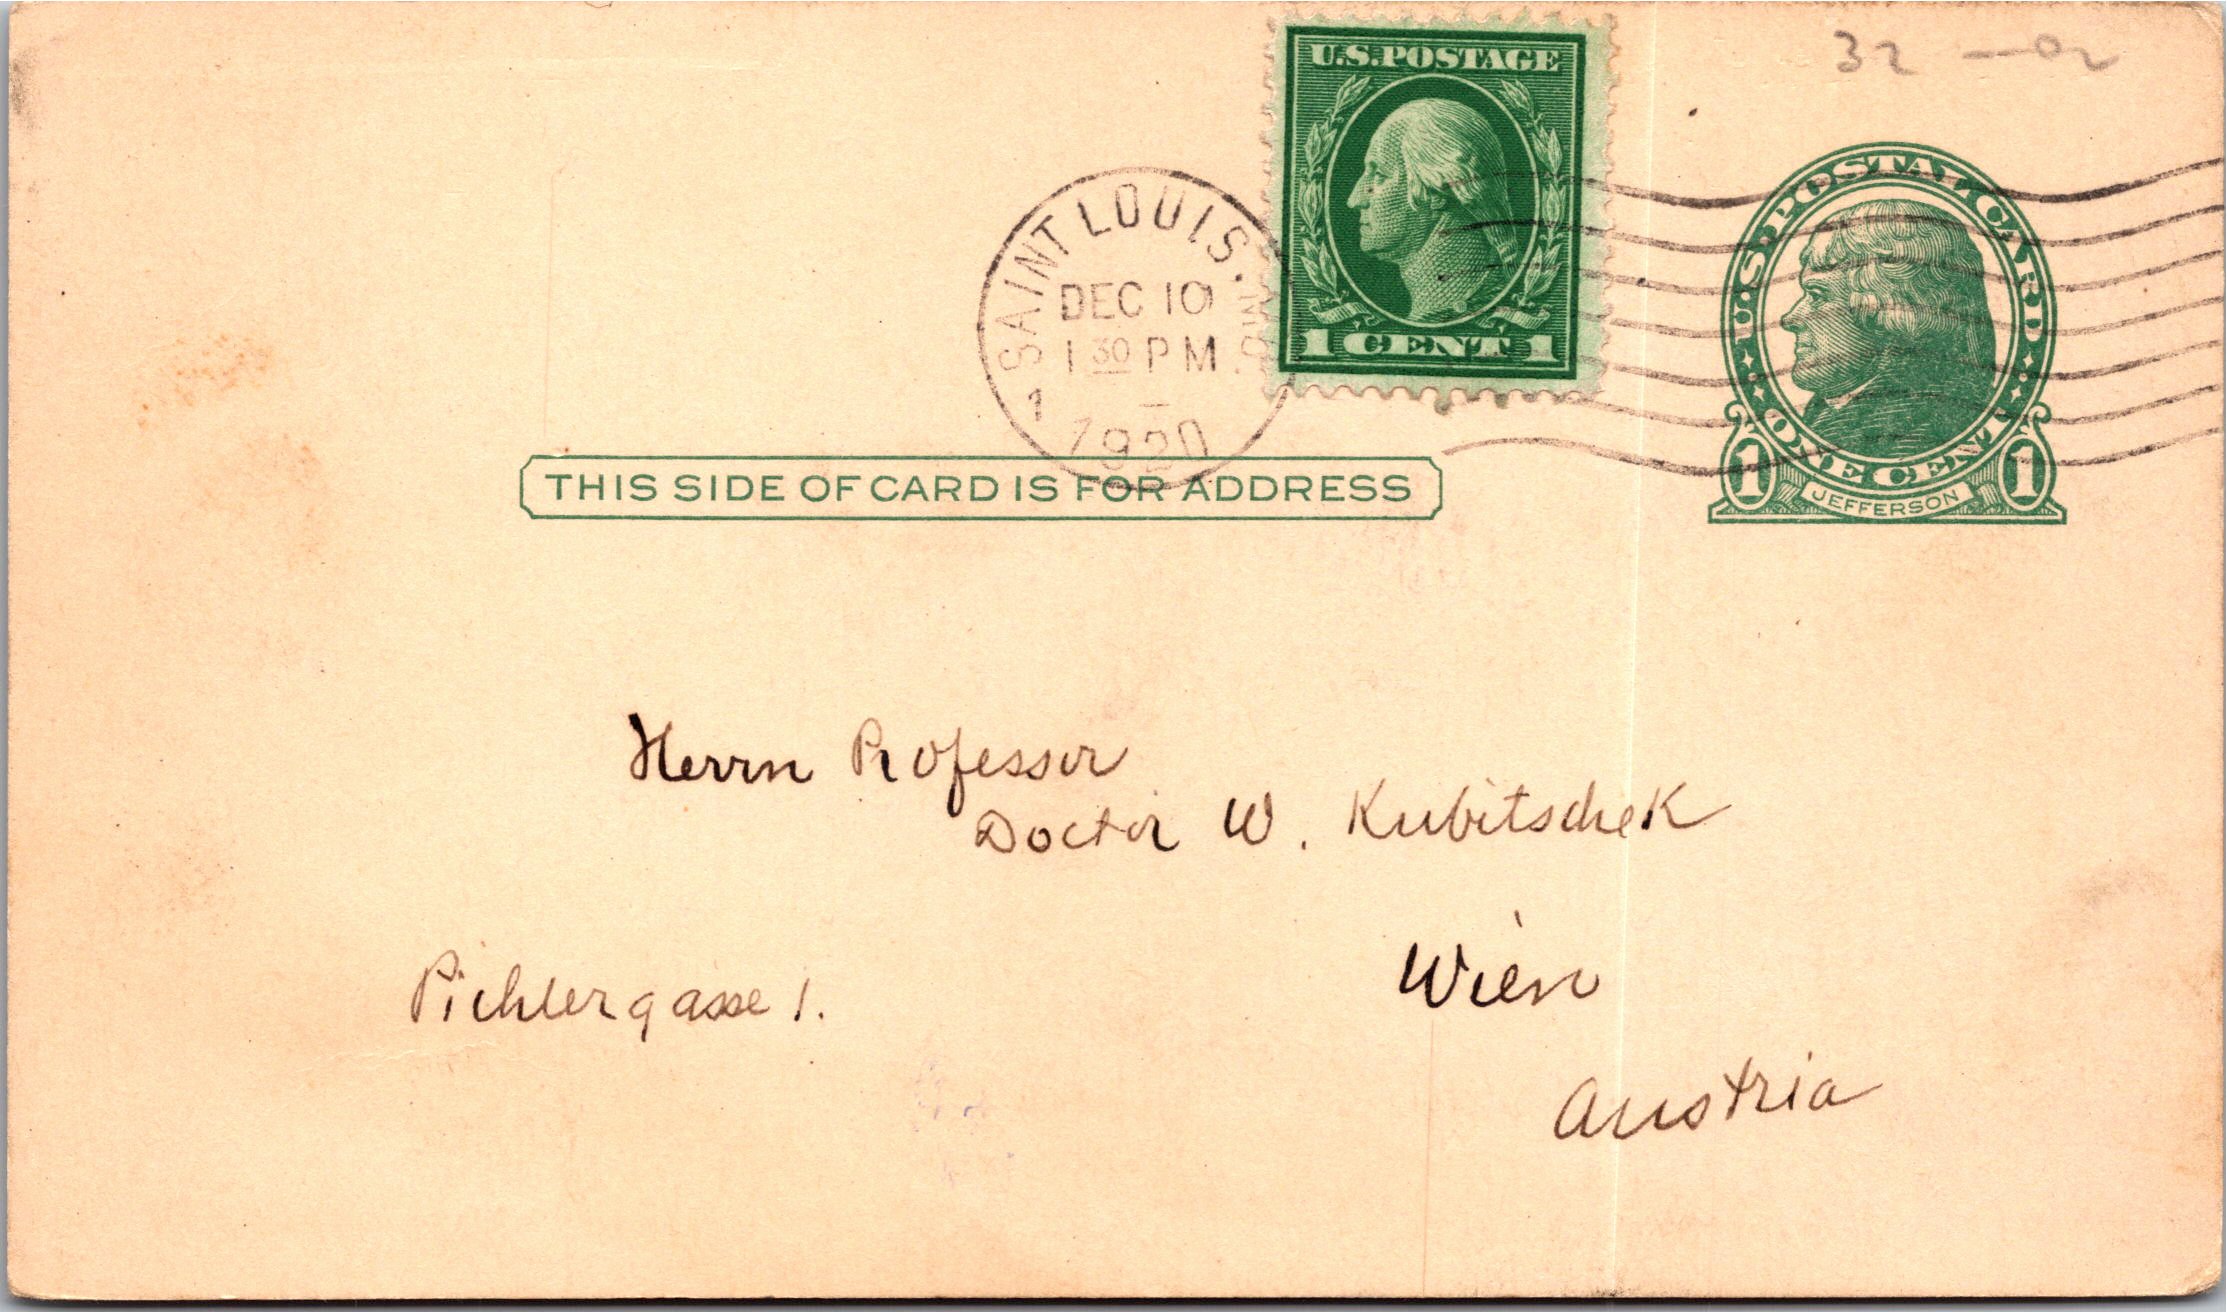 32 —02
U.S. POSTAGE
1 CENT 1
U.S. POSTAL CARD
ONE CENT
1 1
JEFFERSON
SAINT LOUIS, MO.
DEC 10
1 30 PM
1
1920
THIS SIDE OF CARD IS FOR ADDRESS
Herrn Professor
Doctor W. Kubitschek
Pichlergasse 1.
Wien
Austria